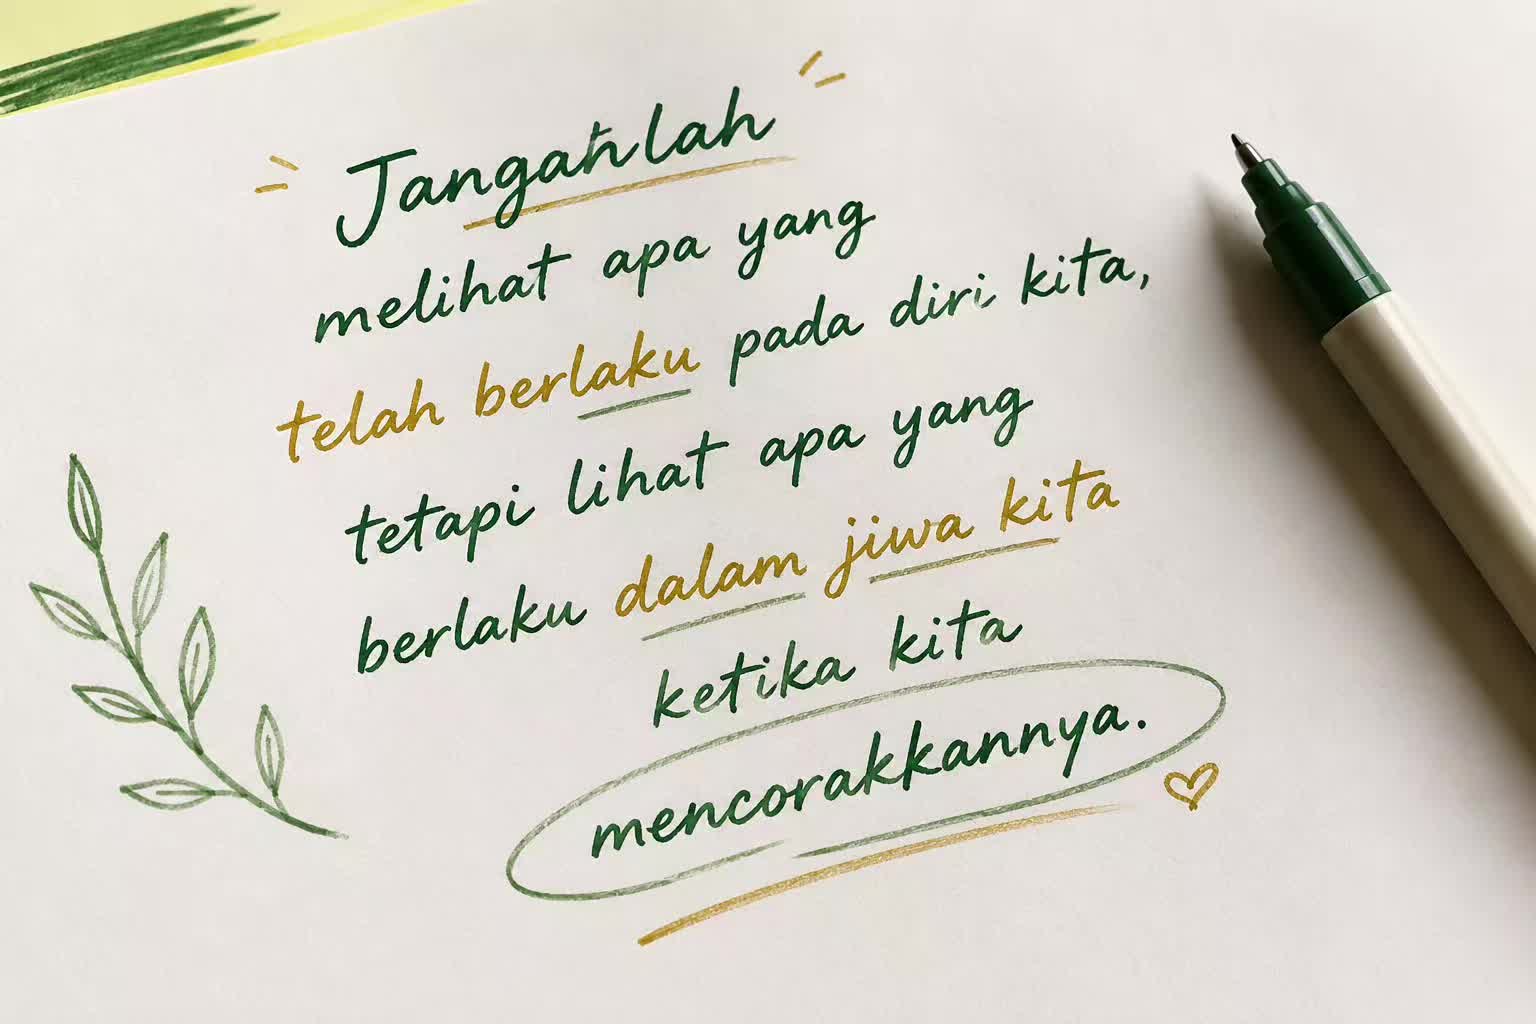 Janganlah
melihat apa yang
telah berlaku pada diri kita,
tetapi lihat apa yang
berlaku dalam jiwa kita
ketika kita
mencorakkannya.